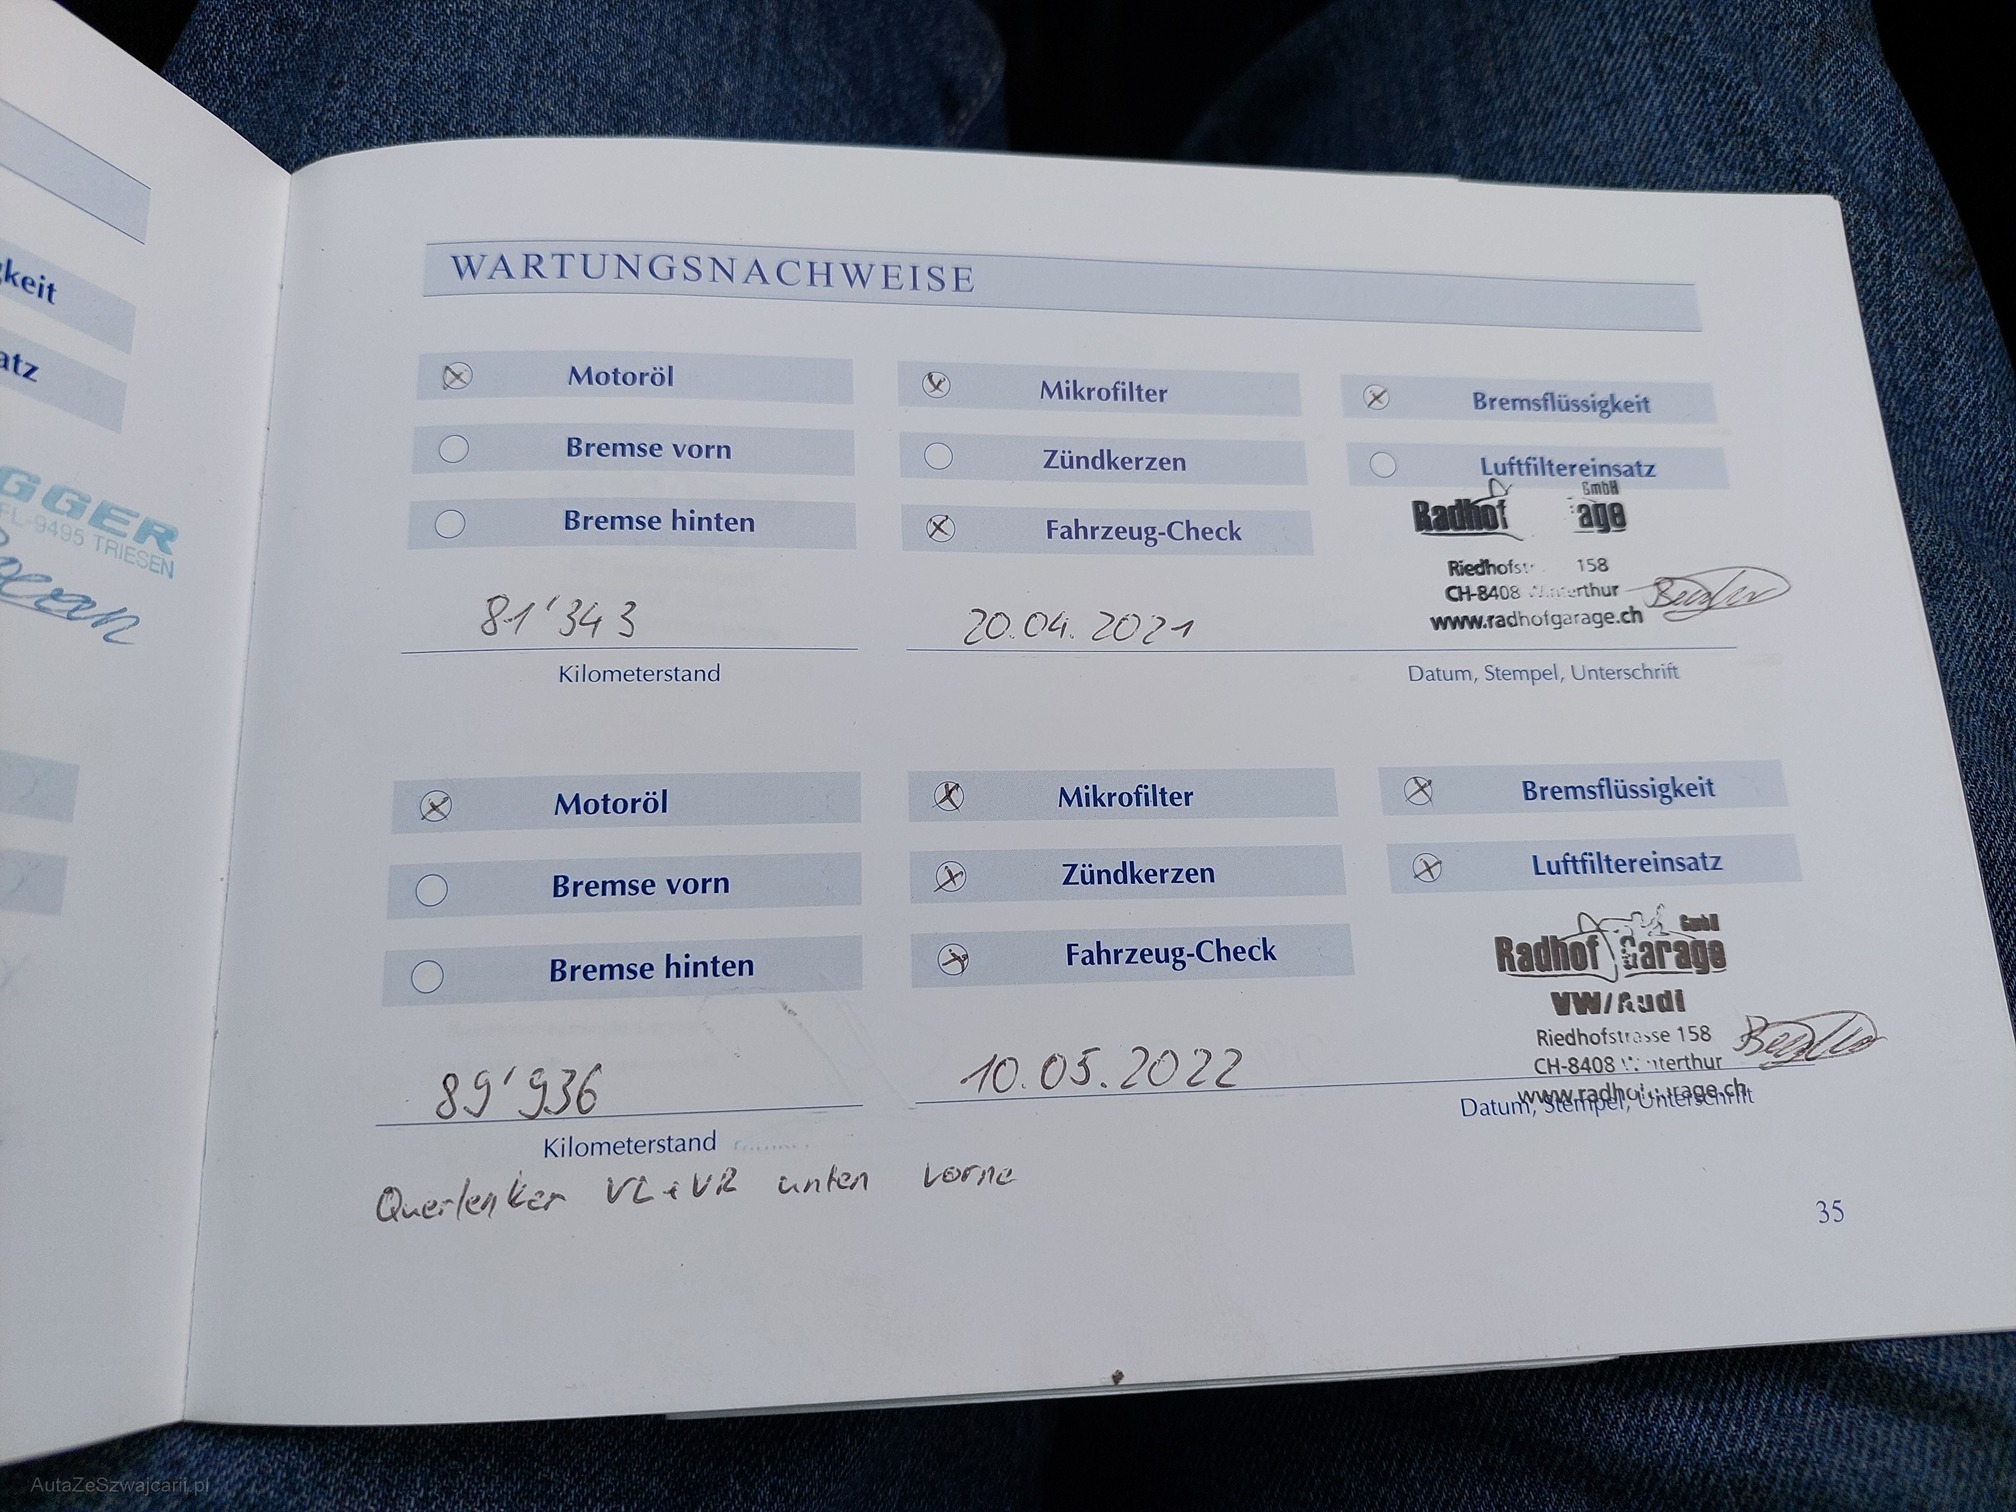 gkeit
atz
GGER
FL-9495 TRIESEN
WARTUNGSNACHWEISE
Motoröl Mikrofilter Bremsflüssigkeit
Bremse vorn Zündkerzen Luftfiltereinsatz
Bremse hinten Fahrzeug-Check
GmbH
Radhof age
Riedhofstr 158
CH-8408 Winterthur
www.radhofgarage.ch
81'343 20.04.2021
Kilometerstand Datum, Stempel, Unterschrift
Motoröl Mikrofilter Bremsflüssigkeit
Bremse vorn Zündkerzen Luftfiltereinsatz
Bremse hinten Fahrzeug-Check
GmbH
Radhof Garage
VW/Audi
Riedhofstrasse 158
CH-8408 Winterthur
www.radhofgarage.ch
89'936 10.05.2022
Kilometerstand Datum, Stempel, Unterschrift
Querlenker VL + VR unten vorne
35
AutaZeSzwajcarii.pl